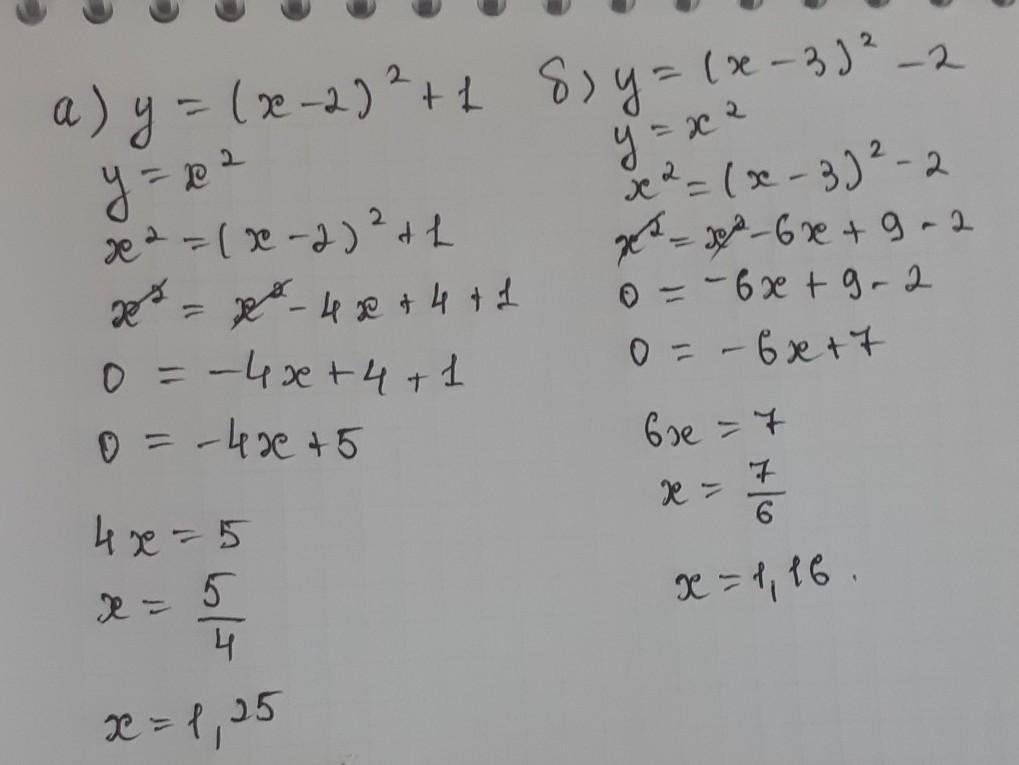 а) y = (x-2)² + 1
y = x²
x² = (x-2)² + 1
x² = x² - 4x + 4 + 1
0 = -4x + 4 + 1
0 = -4x + 5
4x = 5
x = 5/4
x = 1,25
б) y = (x-3)² - 2
y = x²
x² = (x-3)² - 2
x² = x² - 6x + 9 - 2
0 = -6x + 9 - 2
0 = -6x + 7
6x = 7
x = 7/6
x = 1,16.